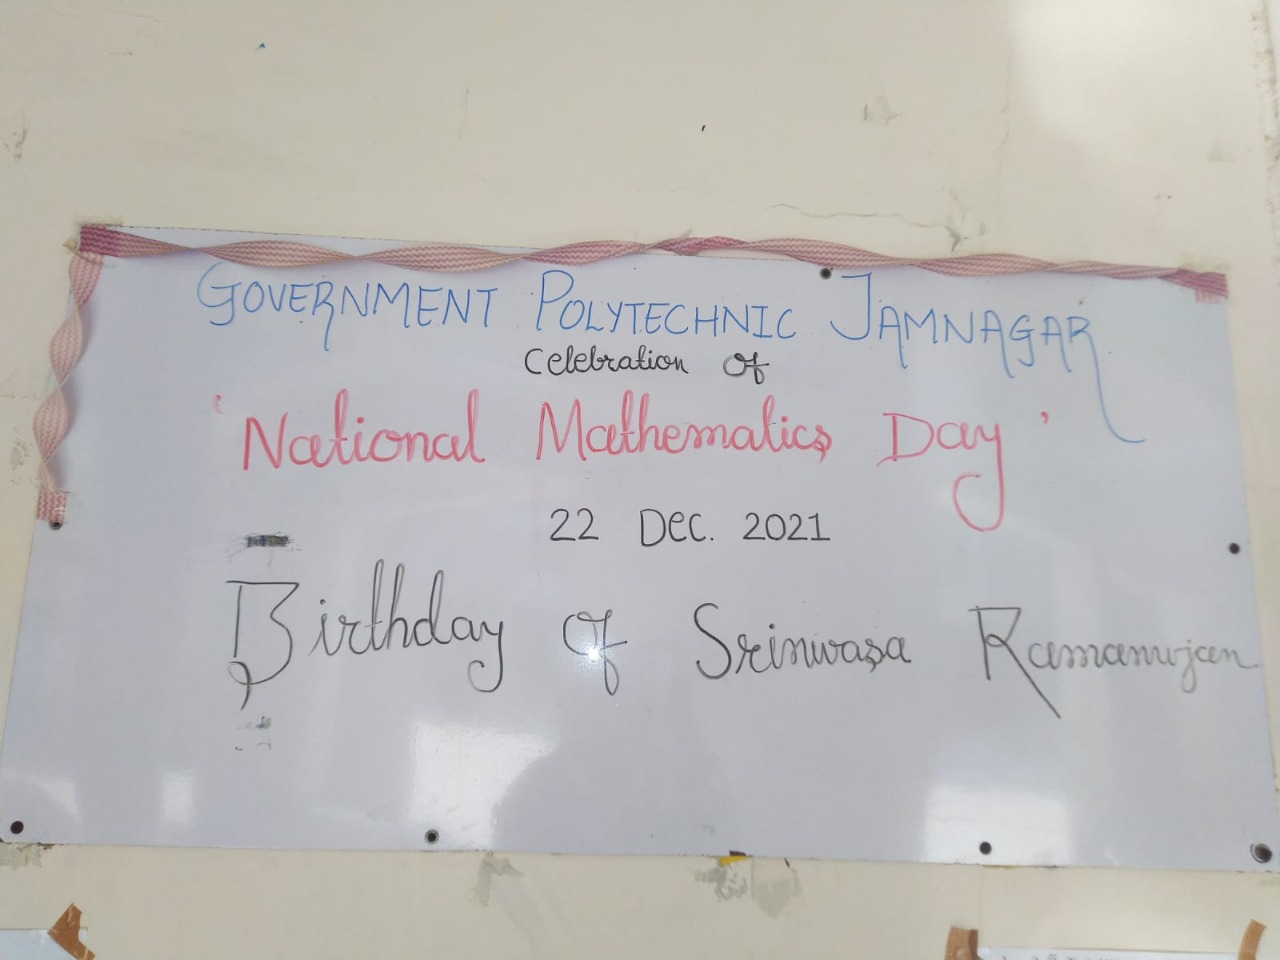 GOVERNMENT POLYTECHNIC JAMNAGAR
Celebration of
'National Mathematics Day'
22 Dec. 2021
Birthday of Srinivasa Ramanujan